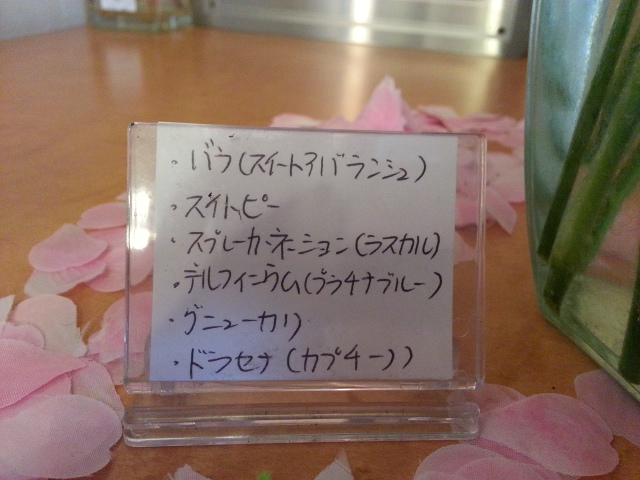 ・バラ(スイートアバランシュ)
・スイトピー
・スプレーカーネーション(ラスカル)
・デルフィニウム(プラチナブルー)
・グニューカリ
・ドラセナ(カプチーノ)